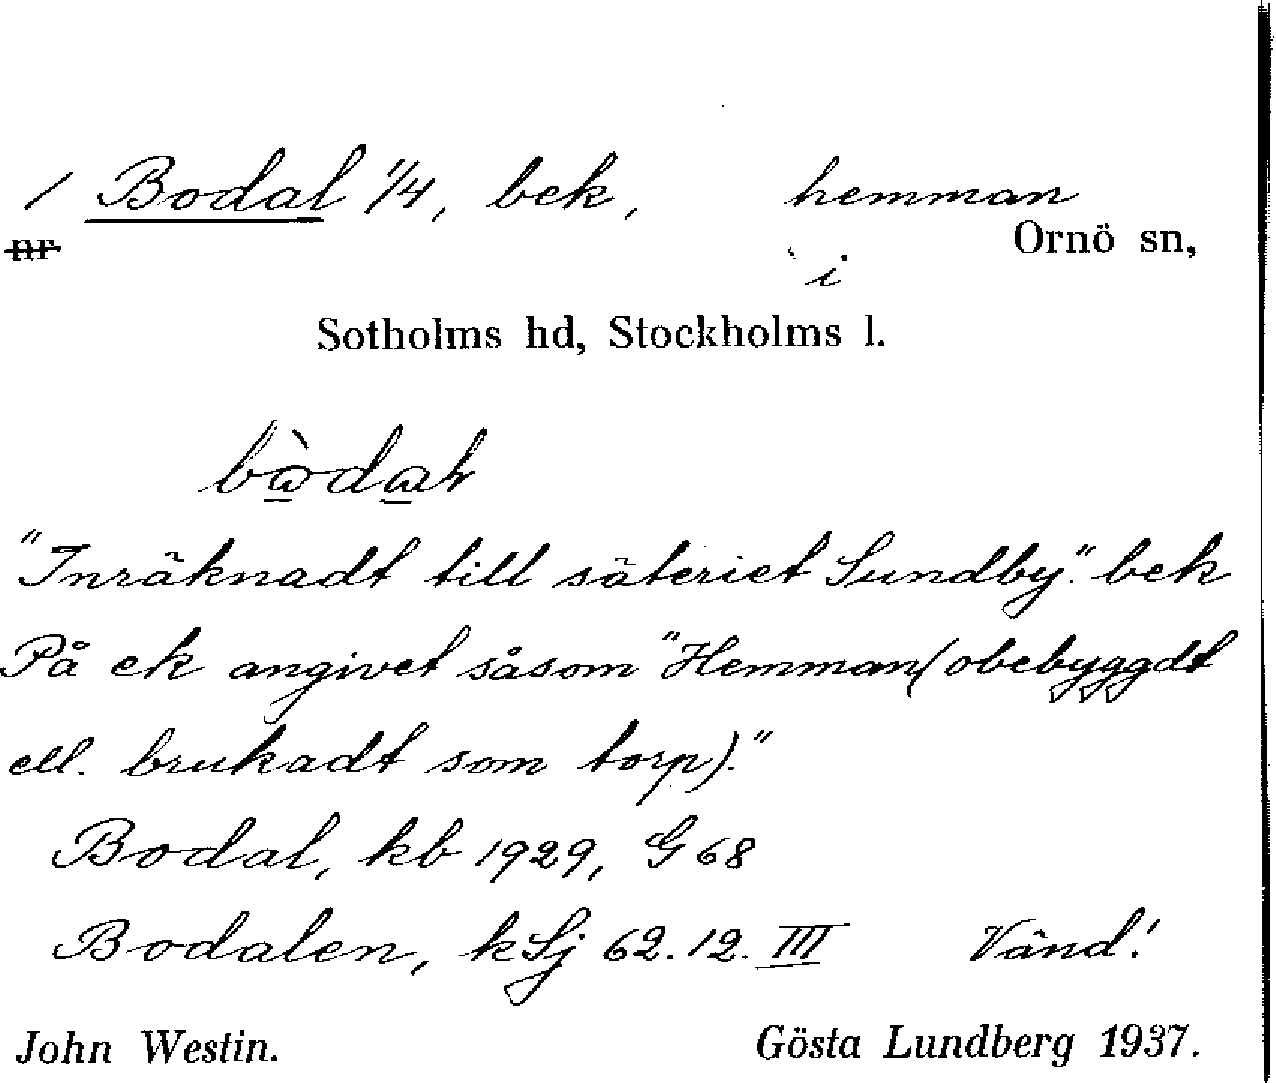 1 Bodal 1/4, bek, hemman
nr
i Ornö sn,
Sotholms hd, Stockholms l.
"Inräknadt till säteriet Sundby". bek
På ek angivet såsom "Hemman (obebyggdt
ell. brukadt som torp)."
Bodal, kb 1929, G 68
Bodalen, kSj 62.12.III Vänd!
John Westin. Gösta Lundberg 1937.